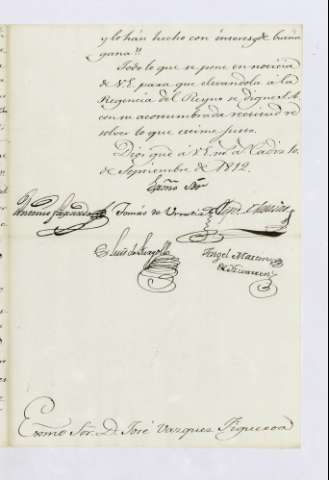 y lo hán hecho con interes, y de buena
gana."
Todo lo que se pone en noticia
de V.E. para que elevandola á la
Regencia del Reyno se digne S.A.
con su acostumbrada rectitud re
solver lo que estime justo.
Dios gue á V.E. m.s a.s Cadiz 10.
de Septiembre de 1812.
Exmo Sor
Tomás de Urrutia
Luis de
Angel Martin
Exmo Sor. D. José Vazquez Figueroa